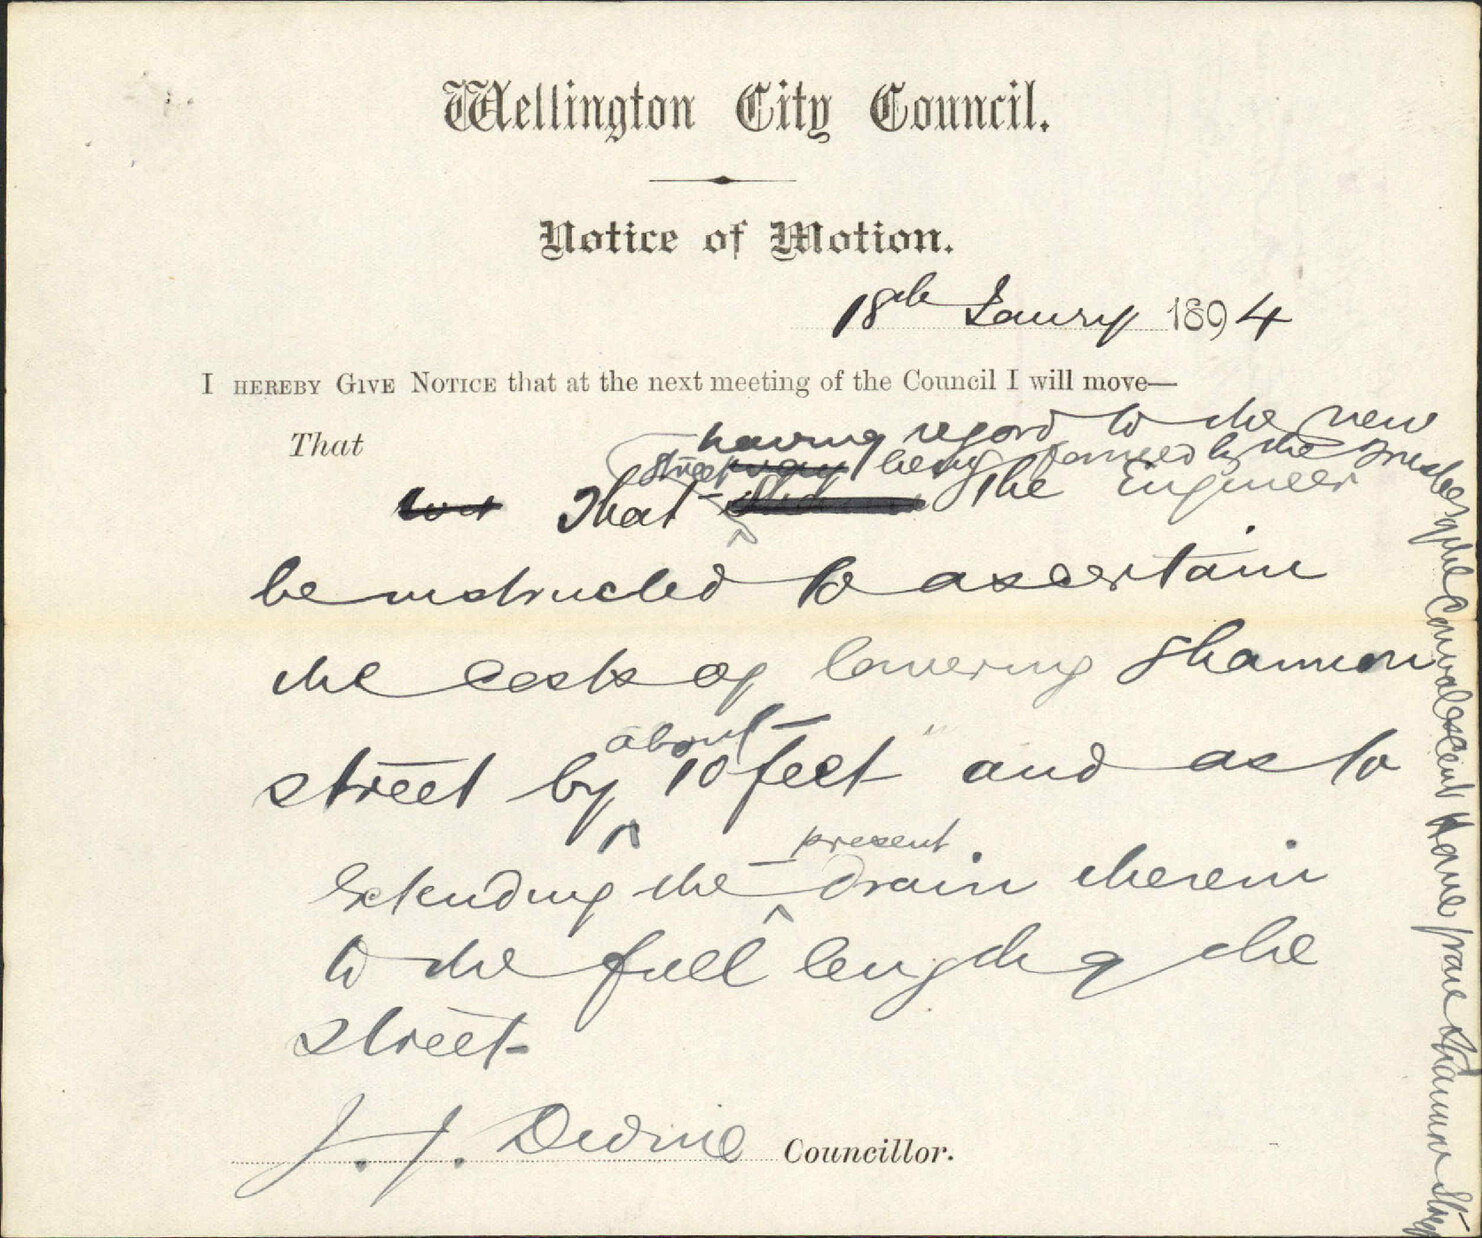 Wellington City Council.
Notice of Motion.
18th Janry 1894
I HEREBY GIVE NOTICE that at the next meeting of the Council I will move—
That
having regard to the new
street way being formed by the Trustees of the Convalescent Home from Shannon Street
That the Engineer
be instructed to ascertain
the costs of lowering Shannon
street by about 10 feet and as to
extending the present drain therein
to the full length of the
street
J. J. Devine Councillor.